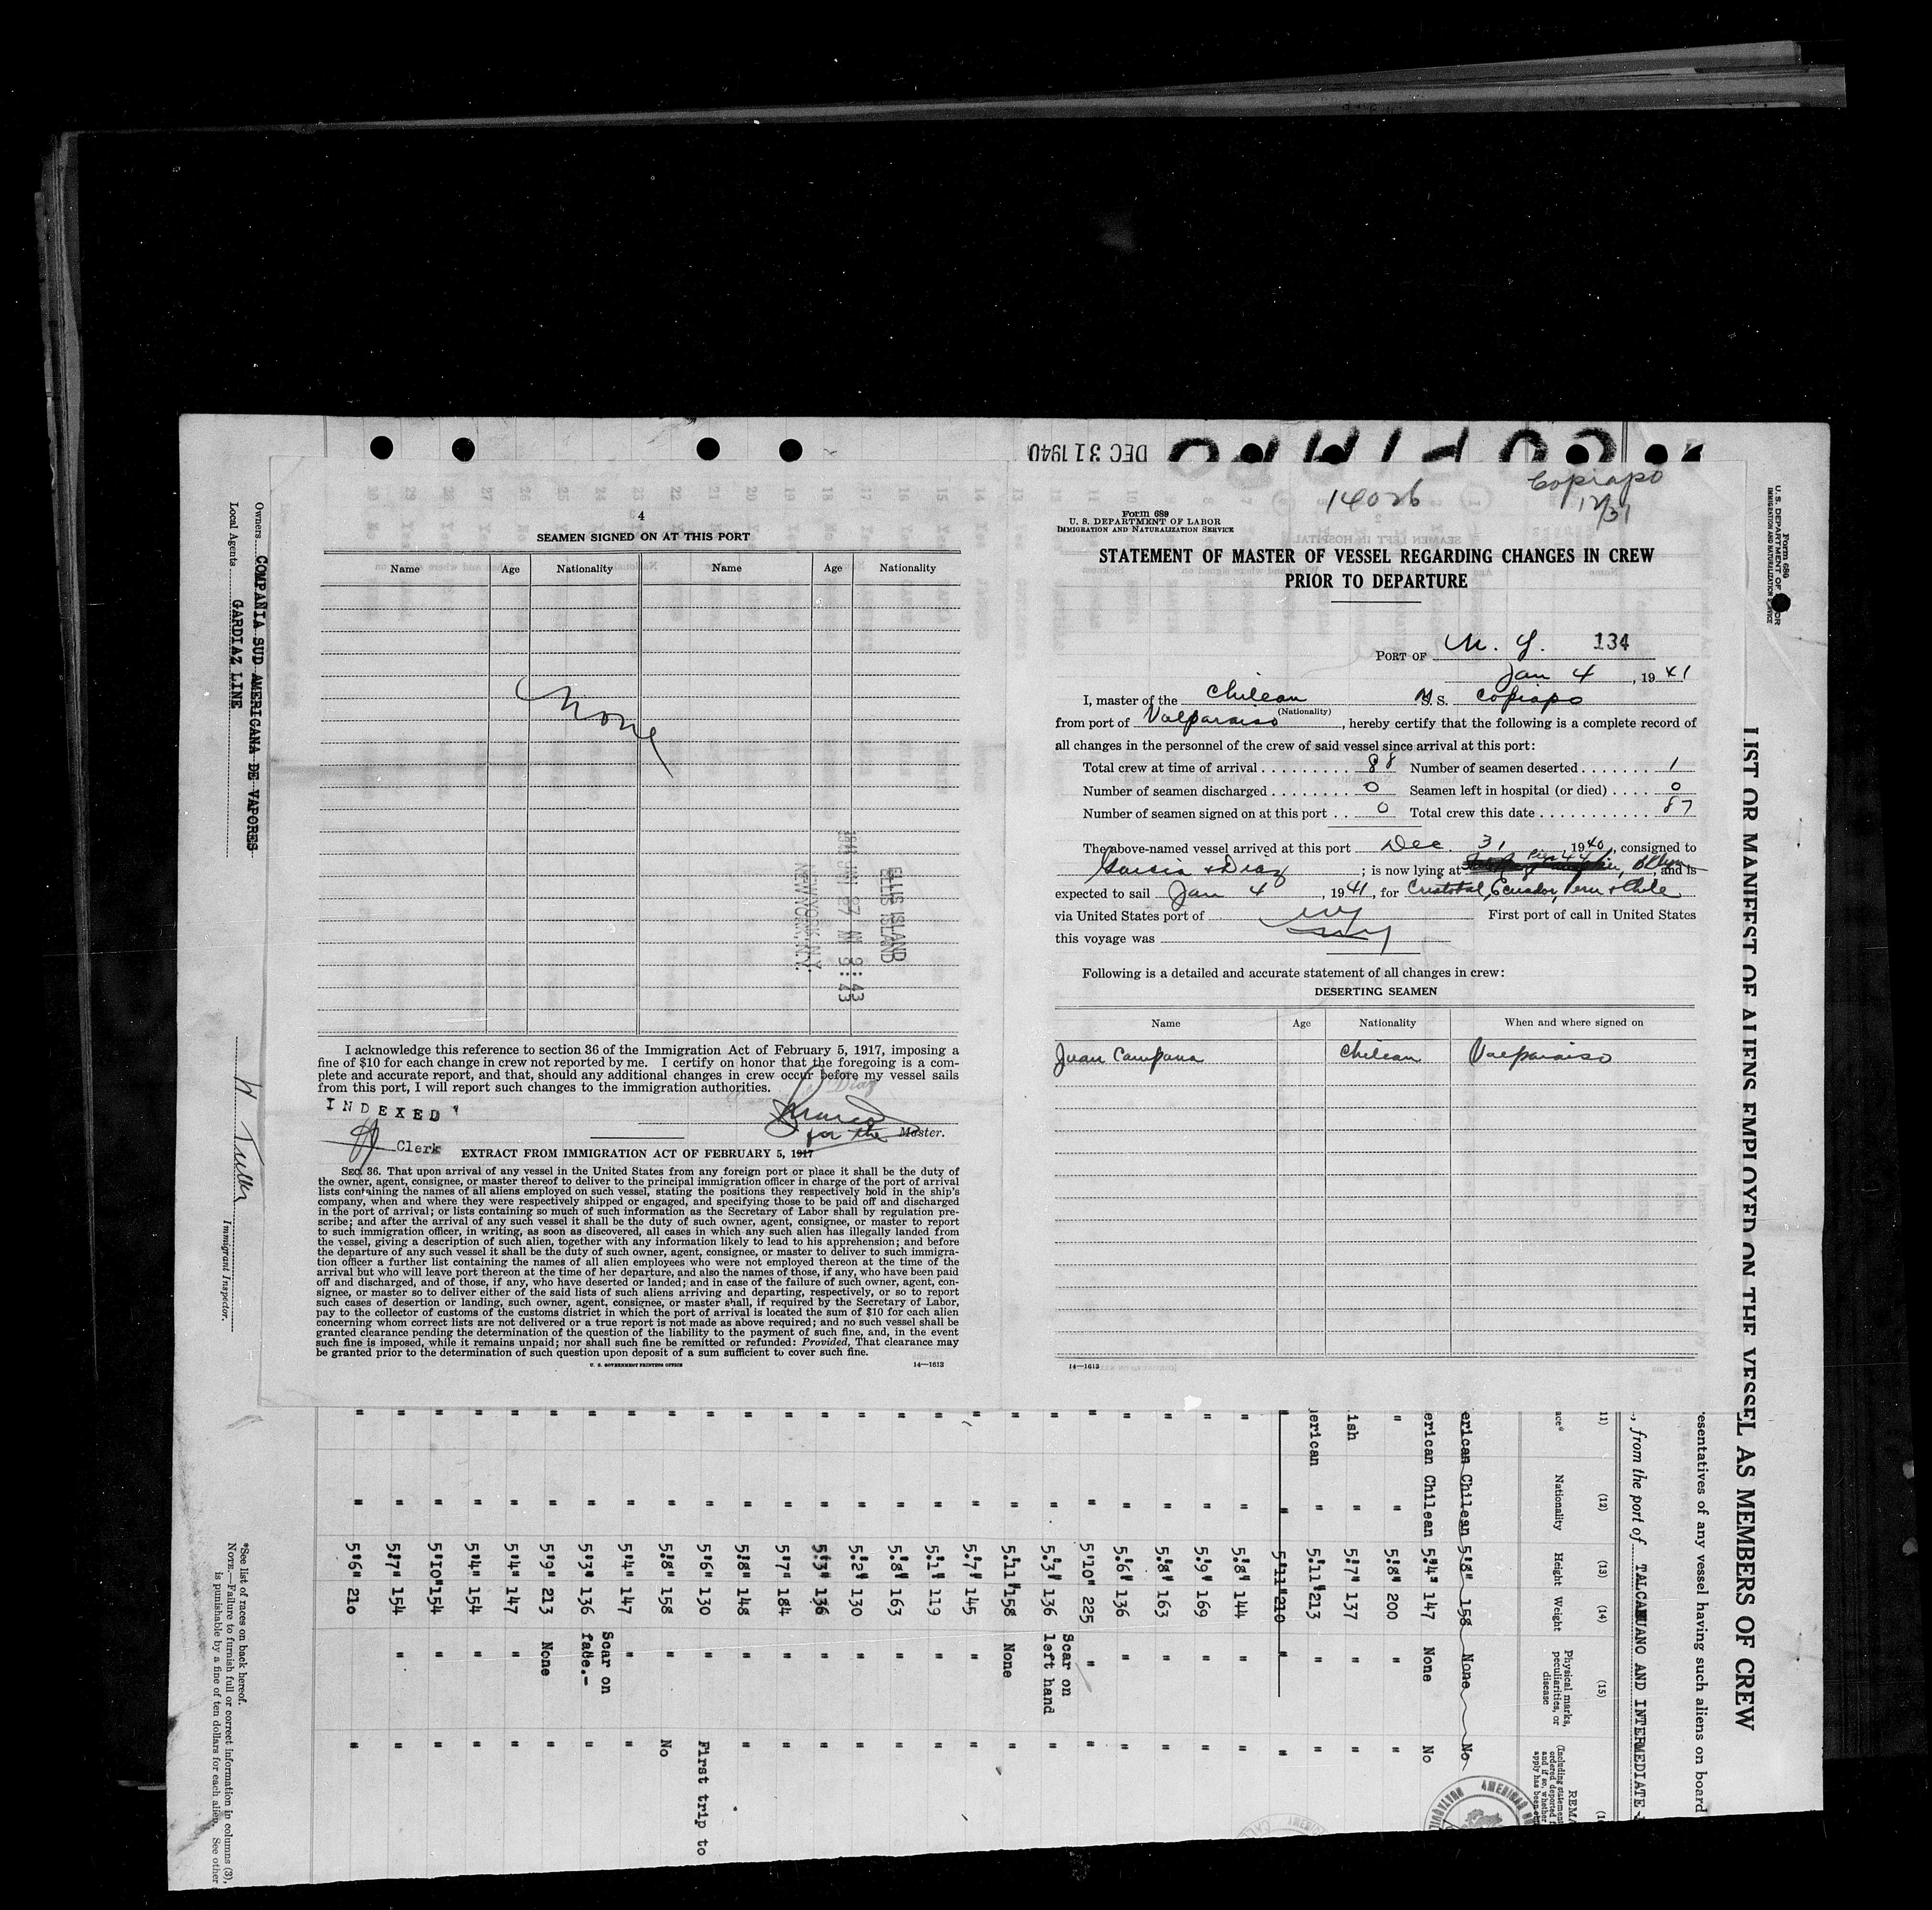 DEC 31 1940
Copiapo
12/31
14026
Form 689
U. S. DEPARTMENT OF LABOR
IMMIGRATION AND NATURALIZATION SERVICE
STATEMENT OF MASTER OF VESSEL REGARDING CHANGES IN CREW
PRIOR TO DEPARTURE
PORT OF N. Y. 134
Jan 4, 1941
I, master of the Chilean M. S. Copiapo
(Nationality)
from port of Valparaiso, hereby certify that the following is a complete record of
all changes in the personnel of the crew of said vessel since arrival at this port:
Total crew at time of arrival . . . . . . . . . 88 Number of seamen deserted . . . . . . . 1
Number of seamen discharged . . . . . . . . 0 Seamen left in hospital (or died) . . . . 0
Number of seamen signed on at this port . . 0 Total crew this date . . . . . . . . . . . . 87
The above-named vessel arrived at this port Dec. 31 1940, consigned to
Garcia & Diaz ; is now lying at Pier 44 Bklyn, and is
expected to sail Jan 4, 1941, for Cristobal, Ecuador, Peru + Chile
via United States port of NY First port of call in United States
this voyage was NY
Following is a detailed and accurate statement of all changes in crew:
DESERTING SEAMEN
Name Age Nationality When and where signed on
Juan Campana Chilean Valparaiso
14—1613
4
SEAMEN SIGNED ON AT THIS PORT
Name Age Nationality Name Age Nationality
None
ELLIS ISLAND
9:43
NEW YORK, N.Y.
I acknowledge this reference to section 36 of the Immigration Act of February 5, 1917, imposing a
fine of $10 for each change in crew not reported by me. I certify on honor that the foregoing is a com-
plete and accurate report, and that, should any additional changes in crew occur before my vessel sails
from this port, I will report such changes to the immigration authorities.
INDEXED
Clerk
for the Master.
EXTRACT FROM IMMIGRATION ACT OF FEBRUARY 5, 1917
SEC. 36. That upon arrival of any vessel in the United States from any foreign port or place it shall be the duty of
the owner, agent, consignee, or master thereof to deliver to the principal immigration officer in charge of the port of arrival
lists containing the names of all aliens employed on such vessel, stating the positions they respectively hold in the ship's
company, when and where they were respectively shipped or engaged, and specifying those to be paid off and discharged
in the port of arrival; or lists containing so much of such information as the Secretary of Labor shall by regulation pre-
scribe; and after the arrival of any such vessel it shall be the duty of such owner, agent, consignee, or master to report
to such immigration officer, in writing, as soon as discovered, all cases in which any such alien has illegally landed from
the vessel, giving a description of such alien, together with any information likely to lead to his apprehension; and before
the departure of any such vessel it shall be the duty of such owner, agent, consignee, or master to deliver to such immigra-
tion officer a further list containing the names of all alien employees who were not employed thereon at the time of the
arrival but who will leave port thereon at the time of her departure, and also the names of those, if any, who have been paid
off and discharged, and of those, if any, who have deserted or landed; and in case of the failure of such owner, agent, con-
signee, or master so to deliver either of the said lists of such aliens arriving and departing, respectively, or so to report
such cases of desertion or landing, such owner, agent, consignee, or master shall, if required by the Secretary of Labor,
pay to the collector of customs of the customs district in which the port of arrival is located the sum of $10 for each alien
concerning whom correct lists are not delivered or a true report is not made as above required; and no such vessel shall be
granted clearance pending the determination of the question of the liability to the payment of such fine, and, in the event
such fine is imposed, while it remains unpaid; nor shall such fine be remitted or refunded: Provided, That clearance may
be granted prior to the determination of such question upon deposit of a sum sufficient to cover such fine.
U. S. GOVERNMENT PRINTING OFFICE 14—1613
Form 689
U. S. DEPARTMENT OF LABOR
IMMIGRATION AND NATURALIZATION SERVICE
LIST OR MANIFEST OF ALIENS EMPLOYED ON THE VESSEL AS MEMBERS OF CREW
esentatives of any vessel having such aliens on board
, from the port of TALCAHUANO AND INTERMEDIATE
11) (12) (13) (14) (15)
ace* Nationality Height Weight Physical marks, peculiarities, or disease
erican Chilean 5'8" 158 None No
erican Chilean 5'4" 147 None No
" " 5'8" 200 " "
ish " 5'7" 137 " "
erican " 5'11" 213 " "
" " 5'11" 210 " "
" " 5'8" 144 " "
" " 5'9" 169 " "
" " 5'8" 163 " "
" " 5'6" 136 " "
" " 5'10" 225 " "
" " 5'3" 136 Scar on left hand "
" " 5'11" 158 None "
" " 5'7" 145 " "
" " 5'1" 119 " "
" " 5'8" 163 " "
" " 5'2" 130 " "
" " 5'3" 136 " "
" " 5'7" 184 " "
" " 5'8" 148 " "
" " 5'6" 130 " First trip to
" " 5'8" 158 " No
" " 5'4" 147 " "
" " 5'3" 136 Scar on fade.- "
" " 5'9" 213 None "
" " 5'4" 147 " "
" " 5'4" 154 " "
" " 5'10" 154 " "
" " 5'7" 154 " "
" " 5'6" 210 "
Owners COMPAÑIA SUD AMERICANA DE VAPORES
Local Agents GARDIAZ LINE
Immigrant Inspector.
*See list of races on back hereof.
NOTE.—Failure to furnish full or correct information in columns (3),
is punishable by a fine of ten dollars for each alien. See other